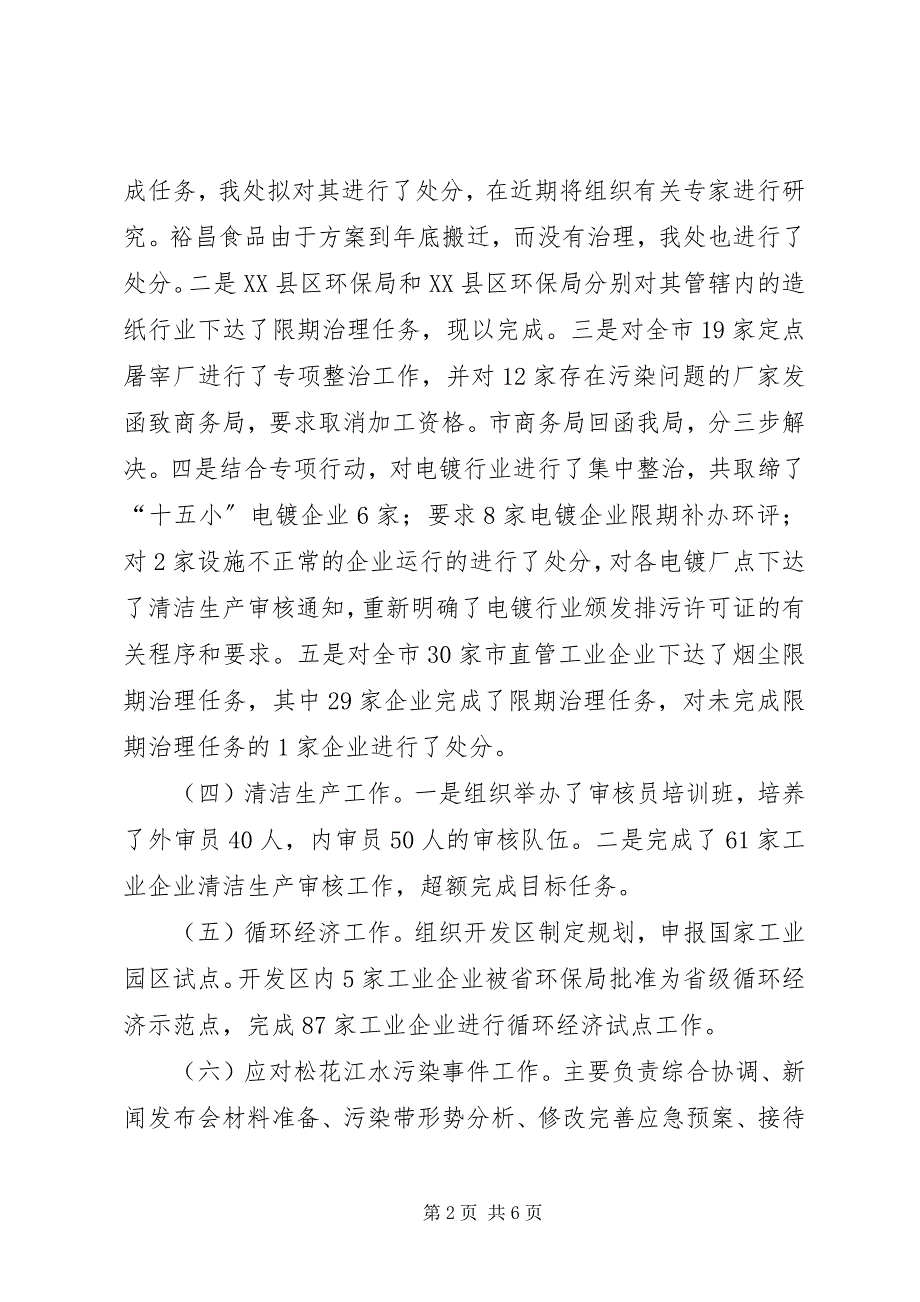 成任务，我处拟对其进行了处分，在近期将组织有关专家进行研
究。裕昌食品由于方案到年底搬迁，而没有治理，我处也进行了
处分。二是 XX 县区环保局和 XX 县区环保局分别对其管辖内的造
纸行业下达了限期治理任务，现以完成。三是对全市 19 家定点
屠宰厂进行了专项整治工作，并对 12 家存在污染问题的厂家发
函致商务局，要求取消加工资格。市商务局回函我局，分三步解
决。四是结合专项行动，对电镀行业进行了集中整治，共取缔了
“十五小〞电镀企业 6 家；要求 8 家电镀企业限期补办环评；
对 2 家设施不正常的企业运行的进行了处分，对各电镀厂点下达
了清洁生产审核通知，重新明确了电镀行业颁发排污许可证的有
关程序和要求。五是对全市 30 家市直管工业企业下达了烟尘限
期治理任务，其中 29 家企业完成了限期治理任务，对未完成限
期治理任务的 1 家企业进行了处分。
（四）清洁生产工作。一是组织举办了审核员培训班，培养
了外审员 40 人，内审员 50 人的审核队伍。二是完成了 61 家工
业企业清洁生产审核工作，超额完成目标任务。
（五）循环经济工作。组织开发区制定规划，申报国家工业
园区试点。开发区内 5 家工业企业被省环保局批准为省级循环经
济示范点，完成 87 家工业企业进行循环经济试点工作。
（六）应对松花江水污染事件工作。主要负责综合协调、新
闻发布会材料准备、污染带形势分析、修改完善应急预案、接待
第 2 页 共 6 页